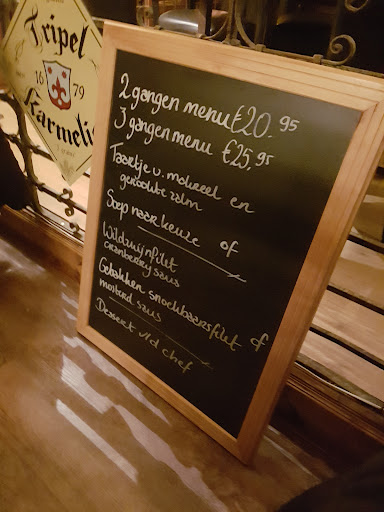 Tripel
16 79
Karmeli
2 gangen menu €20.95
3 gangen menu €25,95
Taartje v. makreel en
gerookte zalm
Soep naar keuze of
Wildzwijnfilet
cranberry saus
Gebakken snoekbaarsfilet of
mosterd saus
Dessert v/d chef